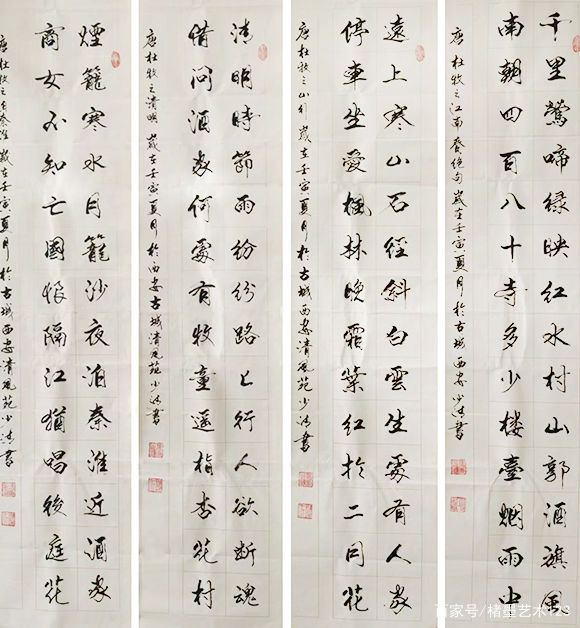 千里鶯啼緑映紅水村山郭酒旗風
南朝四百八十寺多少楼臺烟雨中
唐杜牧之江南春絕句 歲在壬寅夏月於古城西安少書
遠上寒山石徑斜白雲生處有人家
停車坐愛楓林晚霜葉紅於二月花
唐杜牧之山行 歲在壬寅夏月於古城西安清風苑少書
清明時節雨紛紛路上行人欲断魂
借問酒家何處有牧童遥指杏花村
唐杜牧之清明 歲在壬寅夏月於西安古城清風苑少書
煙籠寒水月籠沙夜泊秦淮近酒家
商女不知亡國恨隔江猶唱後庭花
唐杜牧之泊秦淮 歲在壬寅夏月於古城西安清風苑少書
百家号/楮墨艺术123